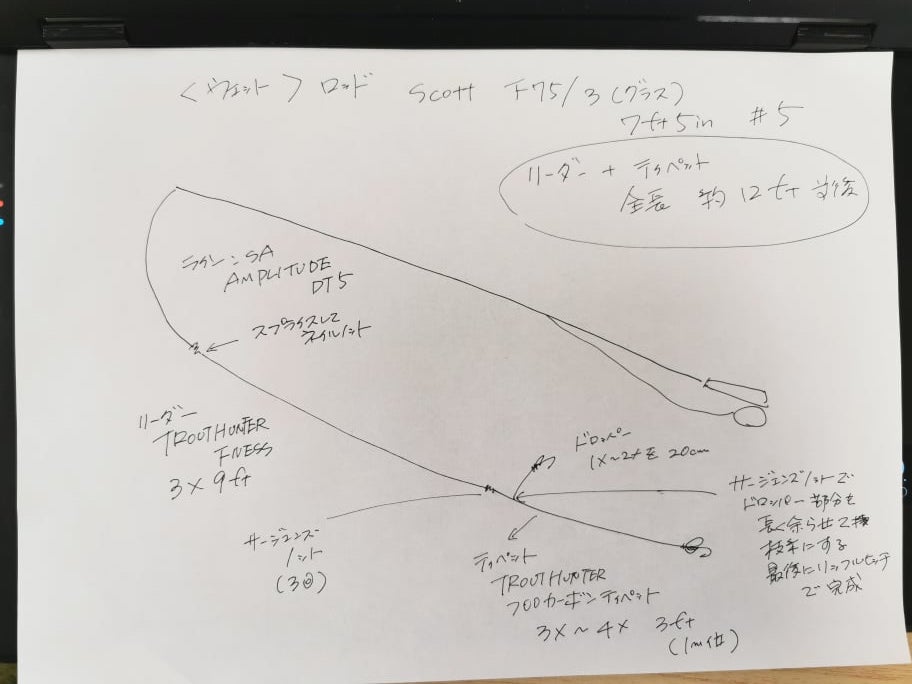 <ウェット> ロッド Scott F75/3 (グラス)
7ft5in #5
リーダー + ティペット
全長 約12ft 前後
ライン:SA
AMPLITUDE
DT5
スプライスして
ネイルノット
リーダー
TROUTHUNTER
FNESS
3X 9ft
ドロッパー
1X~2Xを20cm
サージェンズノットで
ドロッパー部分を
長く余らせて
枝糸にする
最後にリッフルヒッチ
で完成
サージェンズ
ノット
(3回)
ティペット
TROUTHUNTER
フロロカーボンティペット
3X~4X 3ft
(1m位)